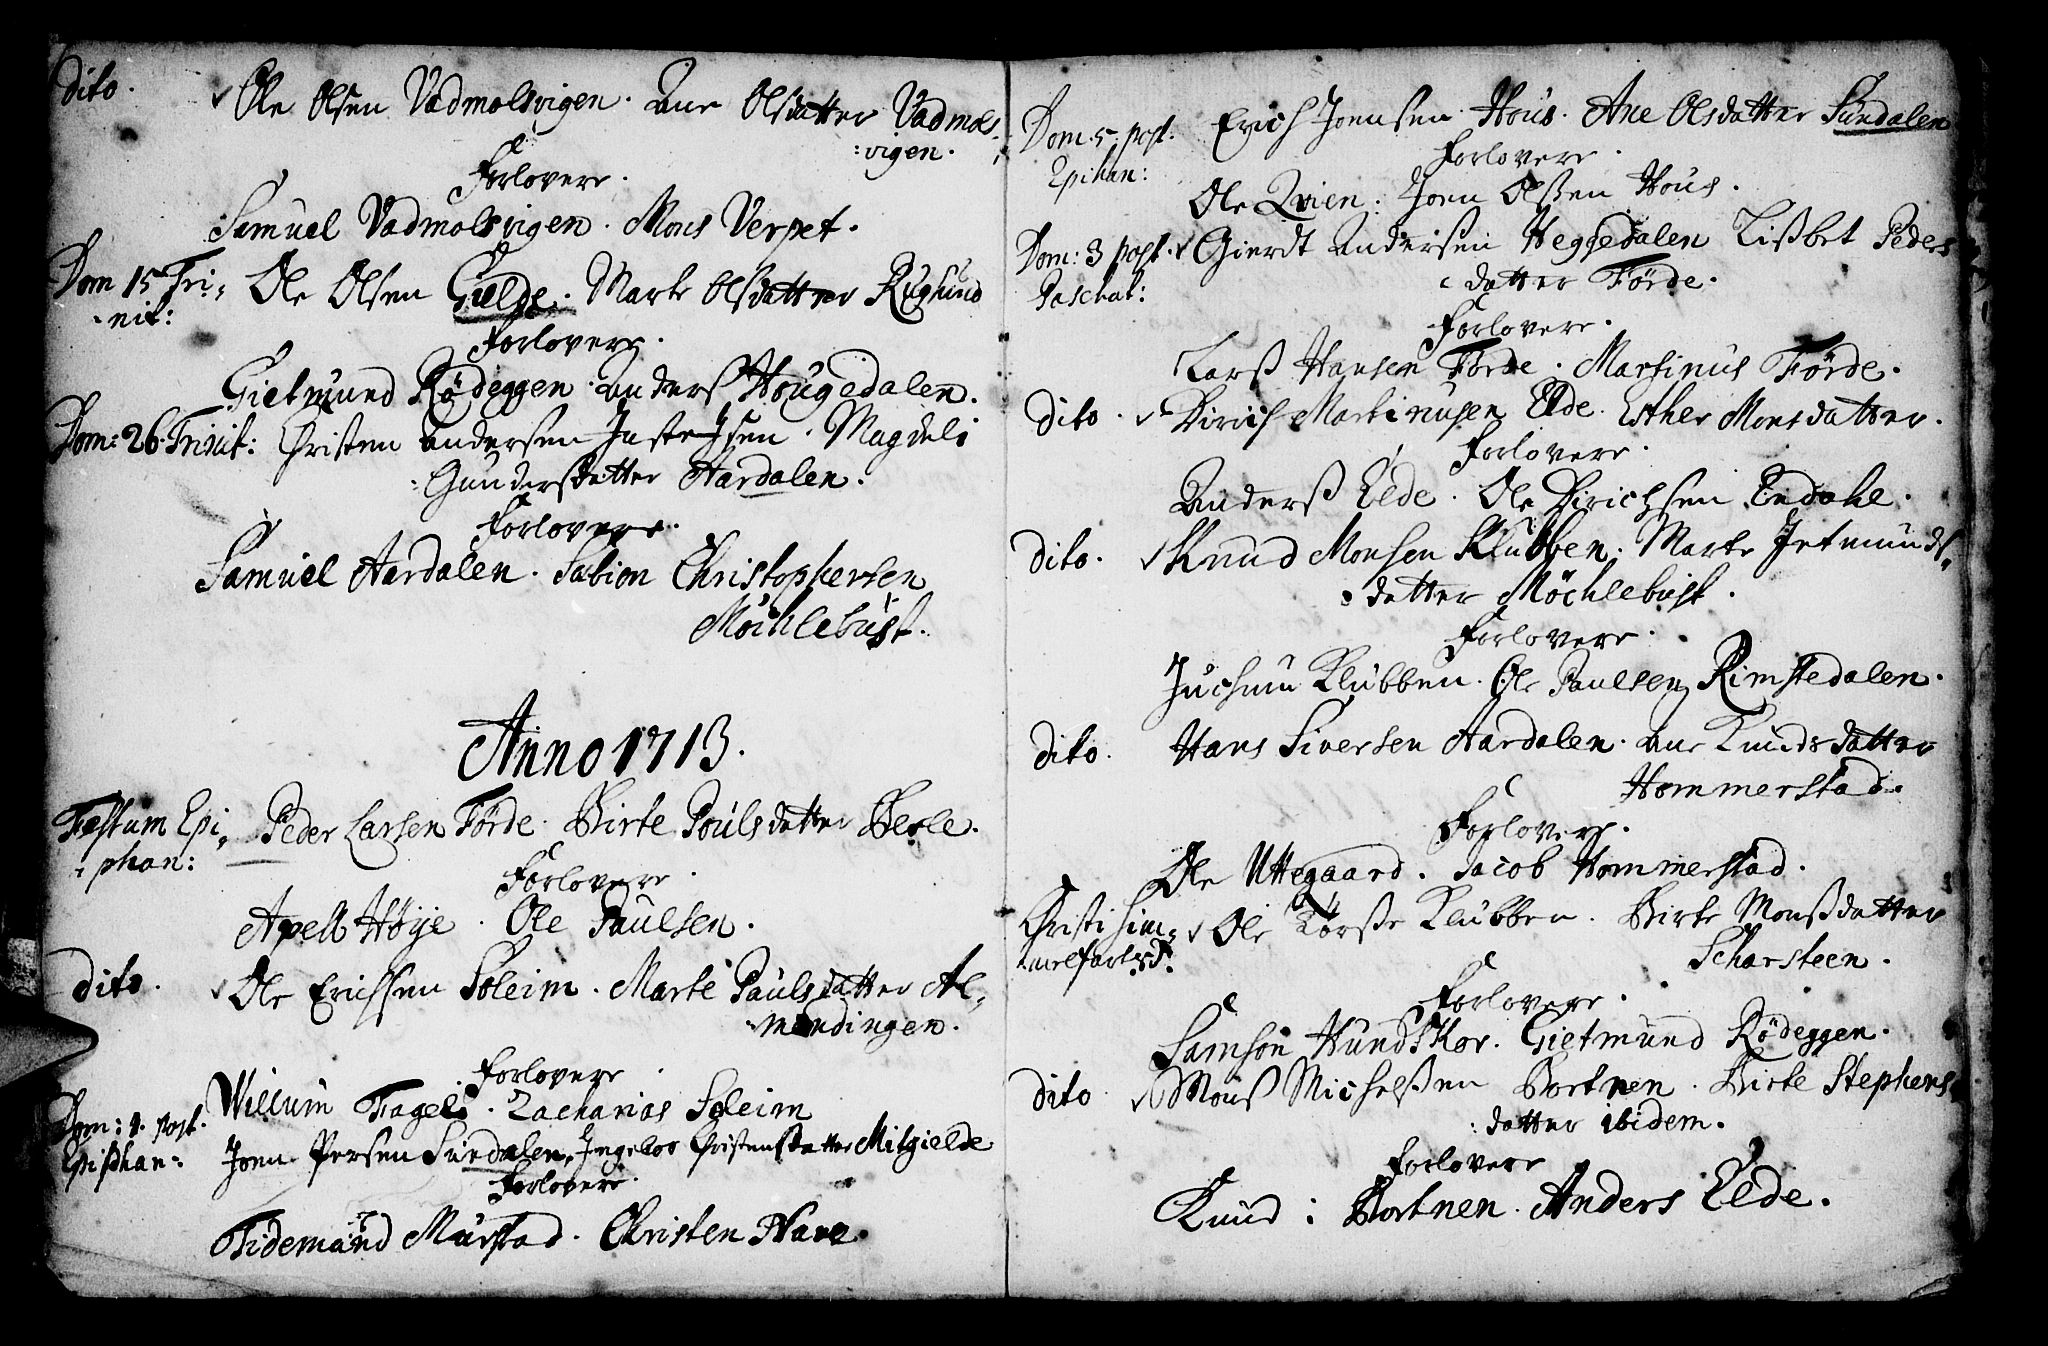 dito. Ole Olsen Vadmolsvigen. Ane Olsdatter Vadmols,
:vigen.
Forlovere.
Samuel Vadmolsvigen. Mons Verpet.
Dom 15 Tri,, Ole Olsen Gulde. Marte Olsdatter Ruglund
,nit:
Forlovere.
Gietmund Rødeggen. Anders Hougedalen.
Dom: 26. Trinit: Christen Andersen Magdeli
:Gundersdatter Aardalen.
Forlovere.
Samuel Aardalen. Sabion Christophersen
Möchlebust.
Anno 1713.
Festum Epi,, Peder Larsen Förde. Birte Poulsdatter Berle.
,phan:
Forlovere.
Apell Höye. Ole Paulsen.
dito. Ole Erichsen Soleim. Marte Paulsdatter Al,,
,mendingen.
Forlovere.
Willum Fageli. Zacharias Soleim
Dom: 1. post. Joen Persen Sundalen, Ingebor Christensdatter Mitgielde
Epiphan:
Forlovere.
Tidemand Murstad. Christen Nave.
Dom. 5. post. Erich Joensen Hous. Ane Olsdatter Sundalen
Epihan:
Forlovere.
Ole Qvien. Joen Olsen Hous.
Dom: 3 post. Gierdt Andersen Heggedalen Lißbet Peders
Paschat: datter Förde.
Forlovere.
Larß Hansen Förde. Martinus Förde.
dito. Dirich Martinusen Elde. Esther Monsdatter.
Forlovere.
Anderß Elde. Ole Dirichsen Endahl.
dito. Knud Monsen Klubben. Marte Jetmunds,,
datter Möchlebust.
Forlovere.
Juchum Klubben. Ole Paulsen Rimstedalen.
dito. Hans Siversen Aardalen. Ane Knudsdatter
Hommerstad.
Forlovere.
Ole Uttegaard. Jacob Hommerstad.
Christi Him,, Ole Larße Klubben. Birte Monßdatter
,melfarts d. Scharsteen.
Forlovere.
Samson Hundskor. Gietmund Rödeggen.
dito Monß Michelßen Bortnen. Birte Stephens,
:datter ibidem.
Forlovere
Knud i Bortnen. Anders Elde.